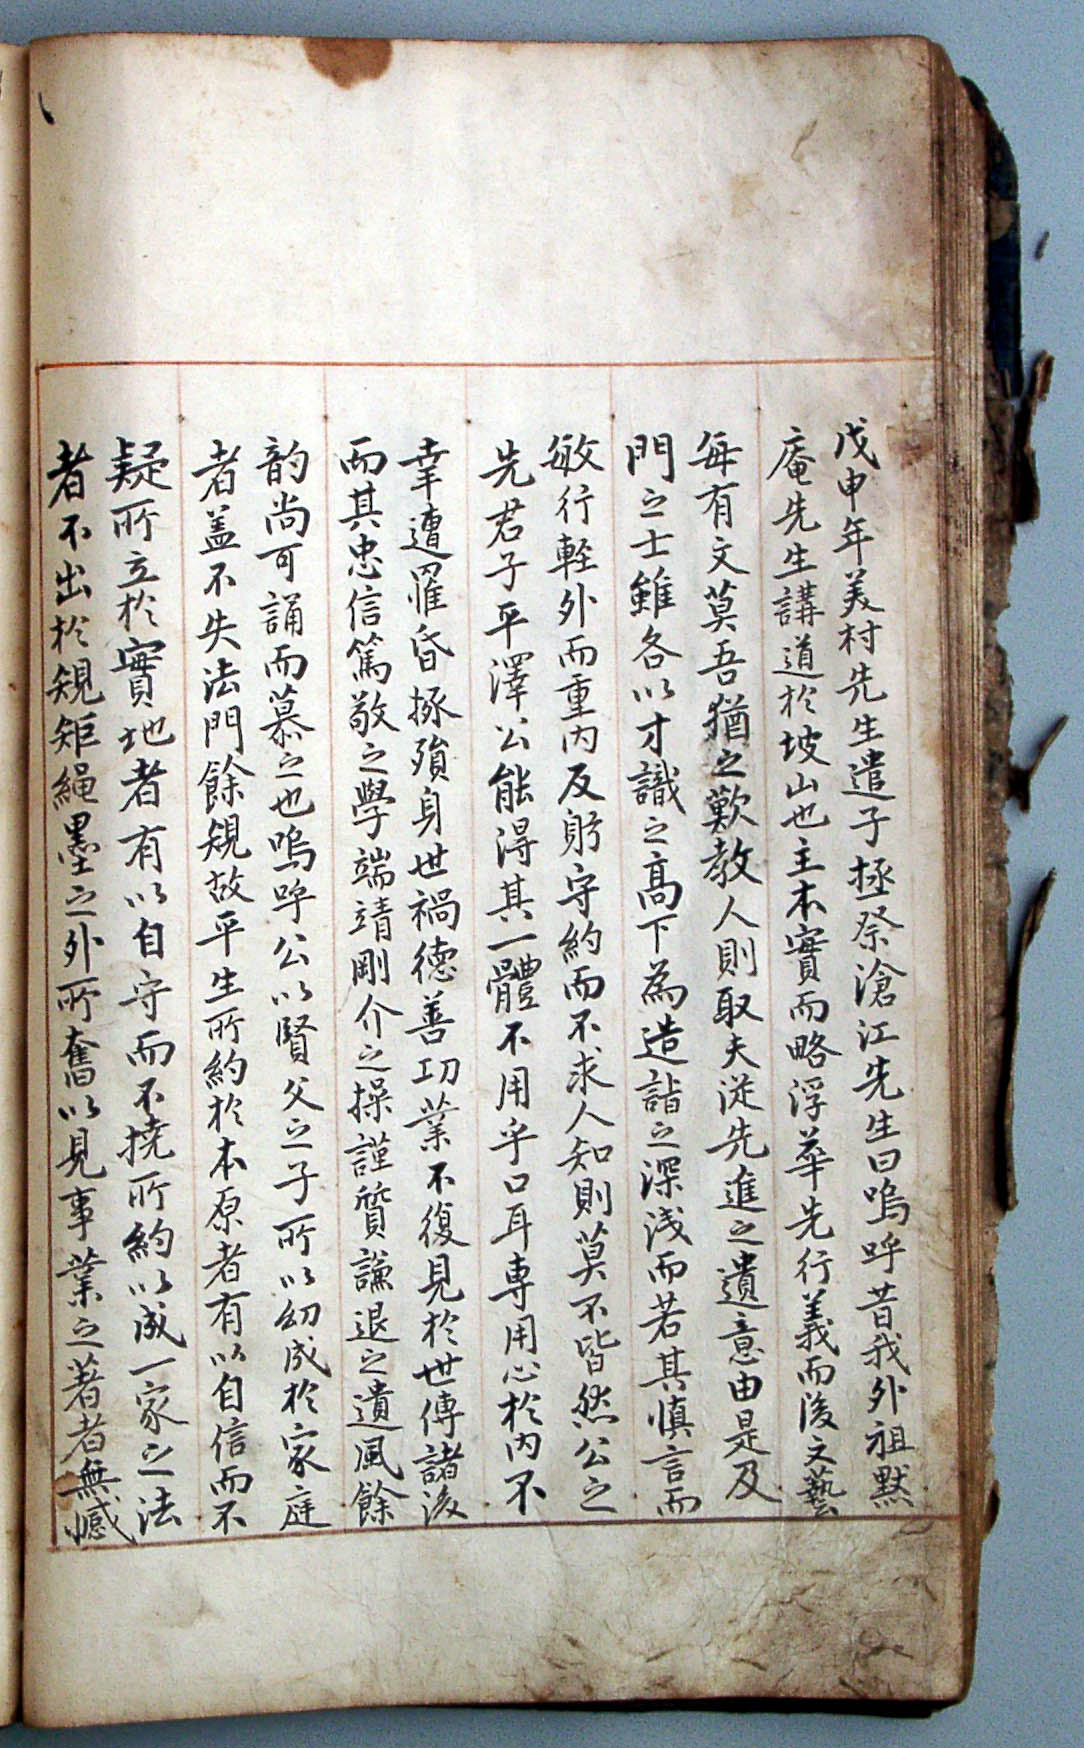 戊申年美村先生遣子拯祭滄江先生曰嗚呼昔我外祖默
庵先生講道於坡山也主本實而略浮華先行義而後文藝
每有文莫吾猶之歎教人則取夫從先進之遺意由是及
門之士雖各以才識之高下為造詣之深浅而若其慎言而
敏行軽外而重内反躬守約而不求人知則莫不皆然公之
先君子平澤公能得其一體不用乎口耳専用心於内不
幸遭罹昏椓殞身世禍德善功業不復見於世傳諸後
而其忠信篤敬之學端靖剛介之操謹質謙退之遺風餘
韵尚可誦而慕之也嗚呼公以賢父之子所以幼成於家庭
者盖不失法門餘規故平生所約於本原者有以自信而不
疑所立於實地者有以自守而不撓所約以成一家之法
者不出於規矩繩墨之外所奮以見事業之著者無憾